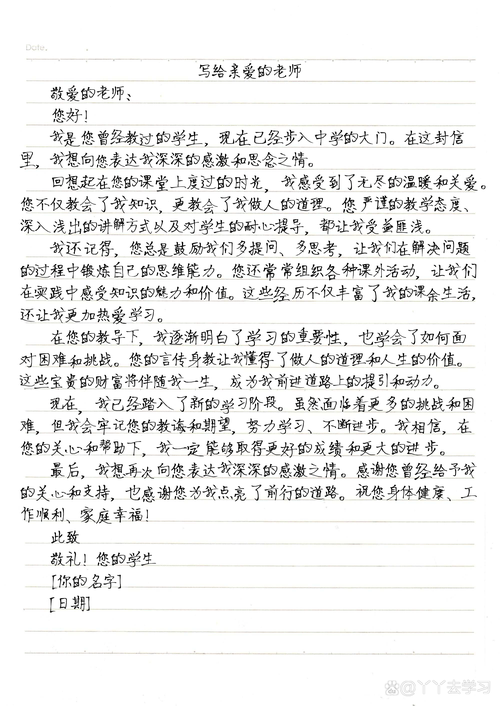 Date.
写给亲爱的老师
敬爱的老师：
您好！
我是您曾经教过的学生，现在已经步入中学的大门。在这封信
里，我想向您表达我深深的感激和思念之情。
回想起在您的课堂上度过的时光，我感受到了无尽的温暖和关爱。
您不仅教会了我知识，更教会了我做人的道理。您严谨的教学态度、
深入浅出的讲解方式以及对学生的耐心提导，都让我受益匪浅。
我还记得，您总是鼓励我们多提问、多思考，让我们在解决问题
的过程中锻炼自己的思维能力。您还常常组织各种课外活动，让我们
在实践中感受知识的魅力和价值。这些经历不仅丰富了我的课余生活，
还让我更加热爱学习。
在您的教导下，我逐渐明白了学习的重要性，也学会了如何面
对困难和挑战。您的言传身教让我懂得了做人的道理和人生的价值。
这些宝贵的财富将伴随我一生，成为我前进道路上的提引和动力。
现在，我已经踏入了新的学习阶段。虽然面临着更多的挑战和困
难，但我会牢记您的教诲和期望，努力学习、不断进步。我相信，在
您的关心和帮助下，我一定能够取得更好的成绩和更大的进步。
最后，我想再次向您表达我深深的感激之情。感谢您曾经给予我
的关心和支持，也感谢您为我点亮了前行的道路。祝您身体健康、工
作顺利、家庭幸福！
此致
敬礼！您的学生
[你的名字]
[日期]
@丫丫去学习